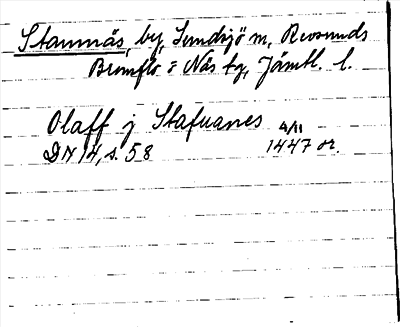 Stamnäs, by, Sundsjö m, Revsunds
Brunflo o Näs tg, Jämtl. l.
Olaff j Stafuanes 4/11
DN 14, s. 58 1447 or.